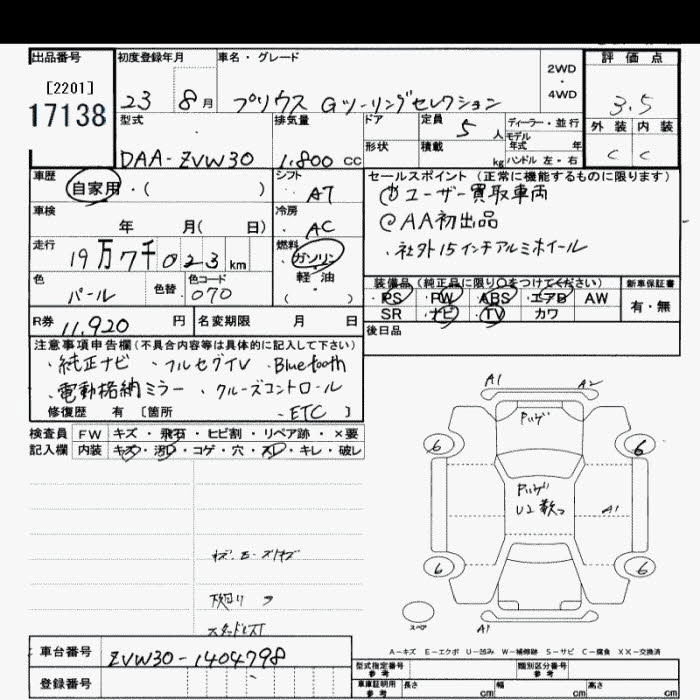 出品番号 初度登録年月 車名・グレード 2WD・4WD 評価点
[2201]
17138 23 8月 プリウス Gツーリングセレクション 3.5
型式 排気量 ドア 定員 5人 ディーラー・並行 外装 内装
モデル年式 年
DAA-ZVW30 1.800cc 形状 積載 kg ハンドル 左・右 C C
車歴 シフト セールスポイント (正常に機能するものに限ります)
自家用・( ) AT ①ユーザー買取車両
車検 冷房 @AA初出品
年 月( 日) AC ・社外15インチアルミホイール
走行 燃料
19万7千023km ガソリン
色 色替 色コード 軽・油 装備品(純正品に限り○をつけてください) 新車保証書
パール 070 ( ) PS PW ABS エアB AW 有・無
R券 11,920円 名変期限 月 日 SR ナビ TV カワ
後日品
注意事項申告欄(不具合内容等は具体的に記入して下さい)
・純正ナビ ・フルセグTV ・Bluetooth
・電動格納ミラー ・クルーズコントロール
修復歴 有 [箇所 ・ETC ]
検査員 FW キズ・飛石・ヒビ割・リペア跡・×要
記入欄 内装 キズ・汚レ・コゲ・穴・スレ・キレ・破レ
A1 A2
6 6
U2 A1
6 6
下回り
スペア A1
A-キズ E-エクボ U-凹み W-補修跡 S-サビ C-腐食 XX-交換済
車台番号 ZVW30-1404798
型式指定番号 参考 類別区分番号 参考
登録番号 車庫証明用 参考 長さ cm 幅 cm 高さ cm